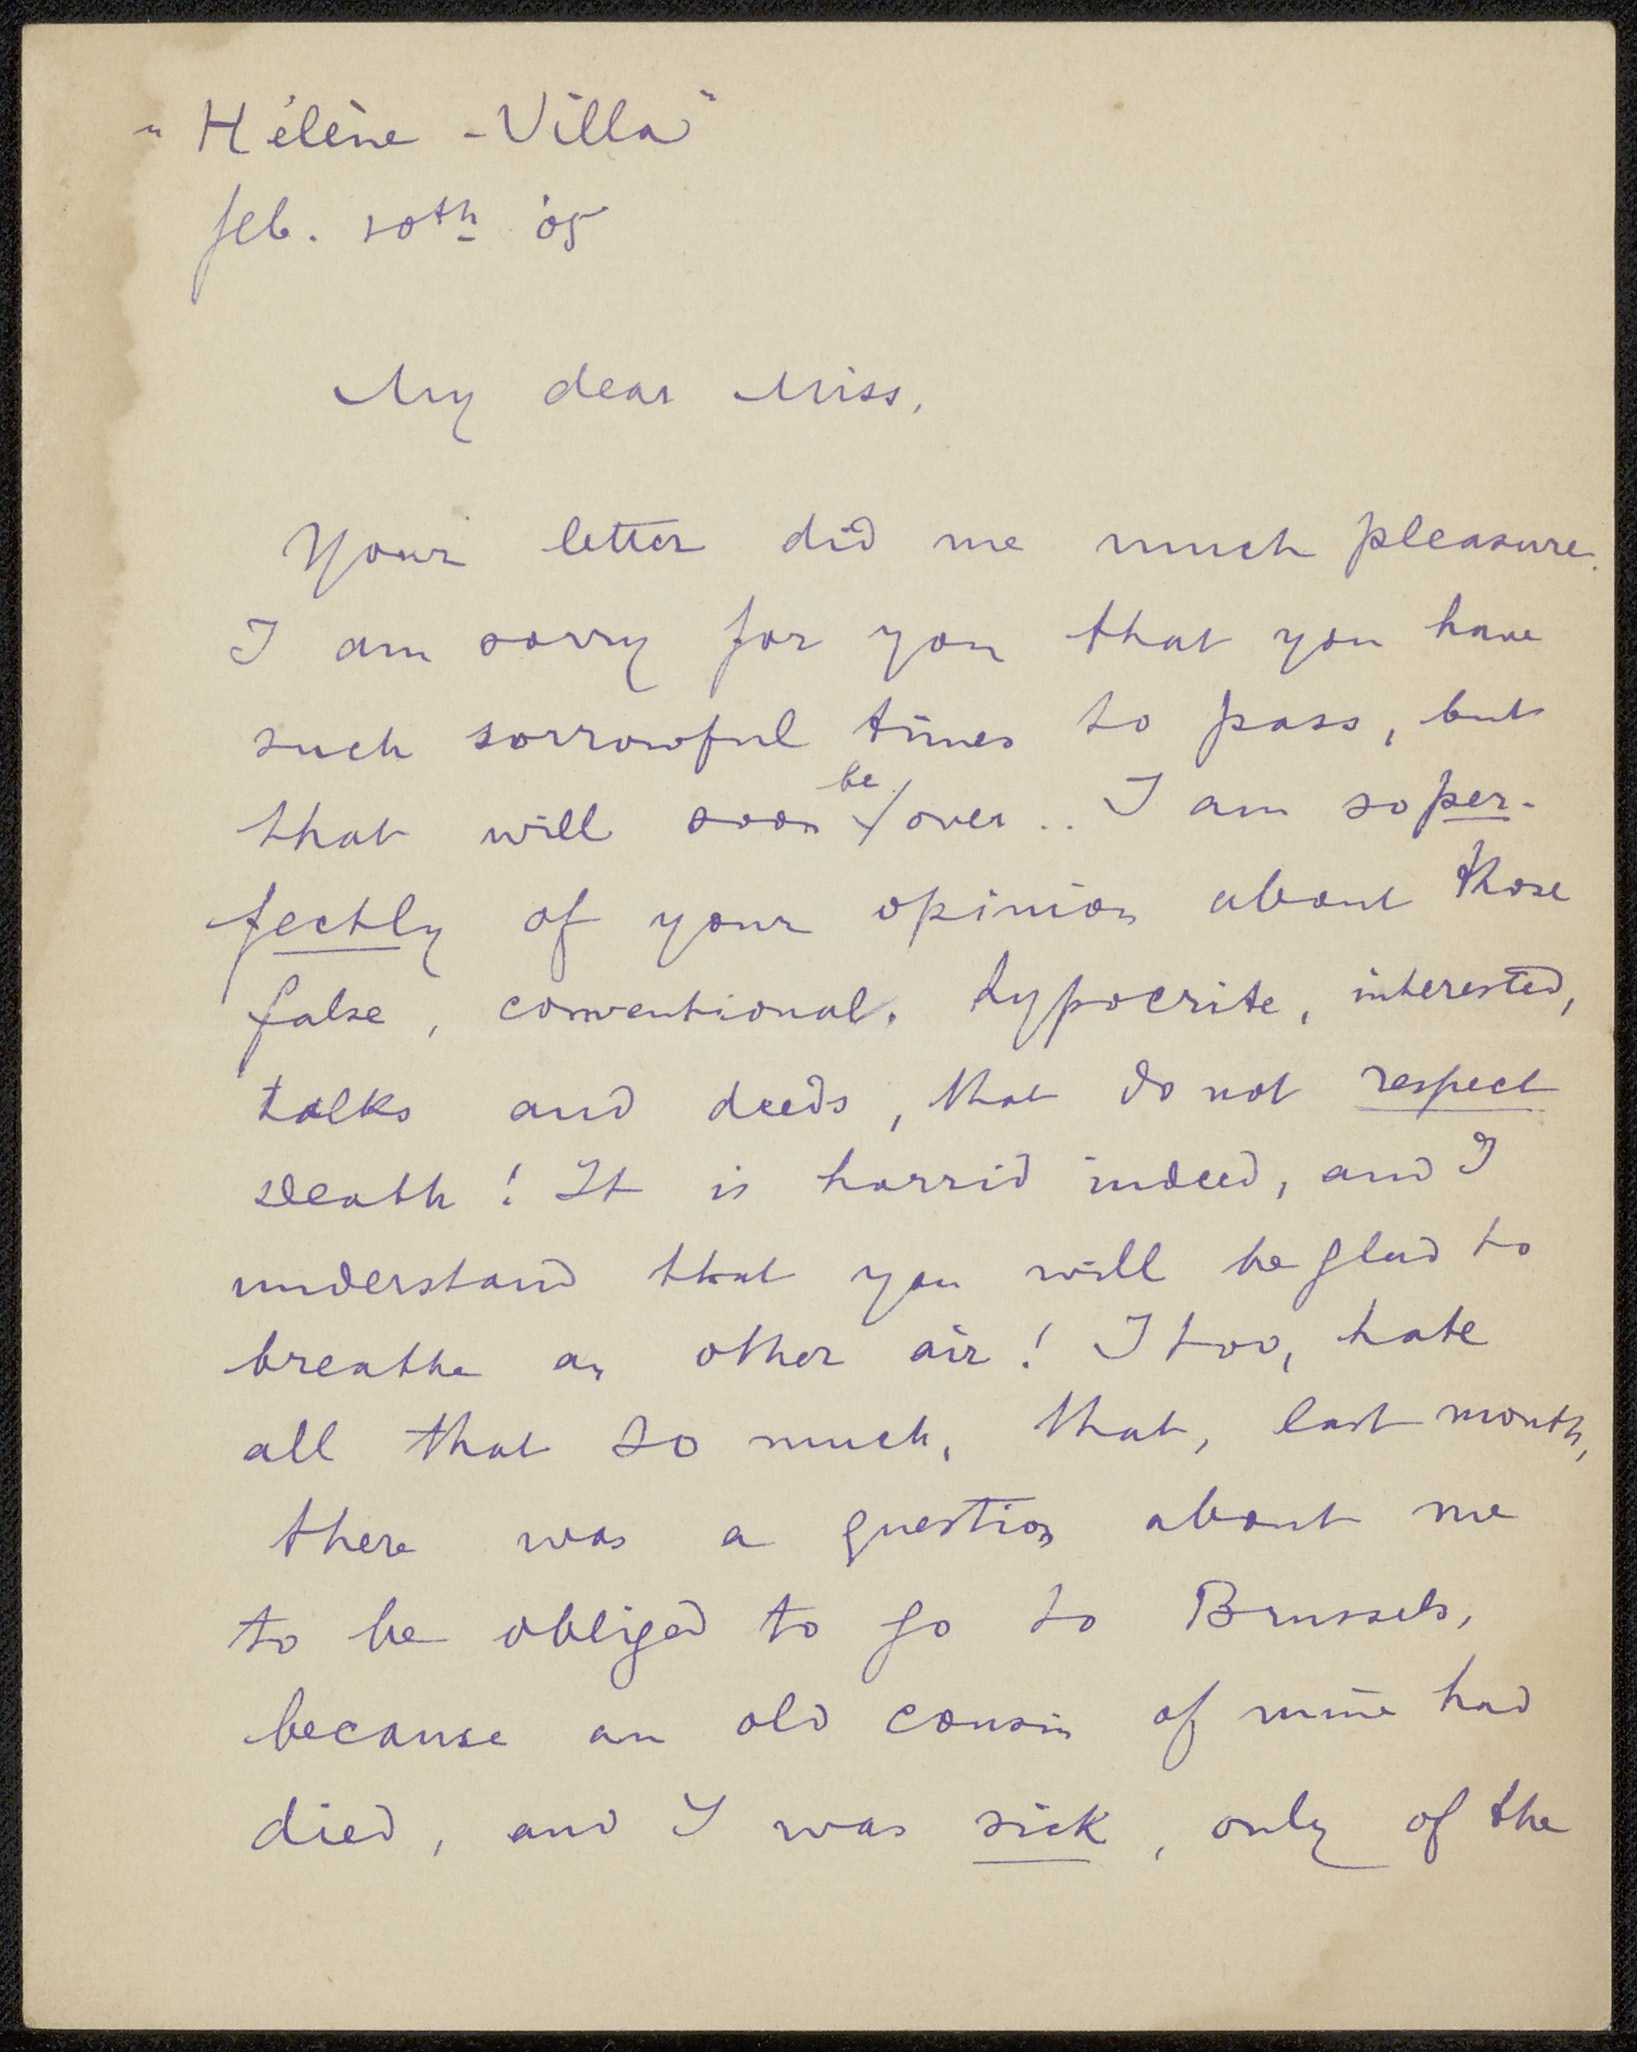 "Hélène-Villa"
feb. 10th '05
My dear Miss,
Your letter did me much pleasure.
I am sorry for you that you have
such sorrowful times to pass, but
that will soon be over.. I am so per-
fectly of your opinion about those
false, conventional, hypocrite, interested,
talks and deeds, that do not respect
death! It is horrid indeed, and I
understand that you will be glad to
breathe an other air! I too, hate
all that so much, that, last month,
there was a question about me
to be obliged to go to Brussels,
because an old cousin of mine had
died, and I was sick, only of the